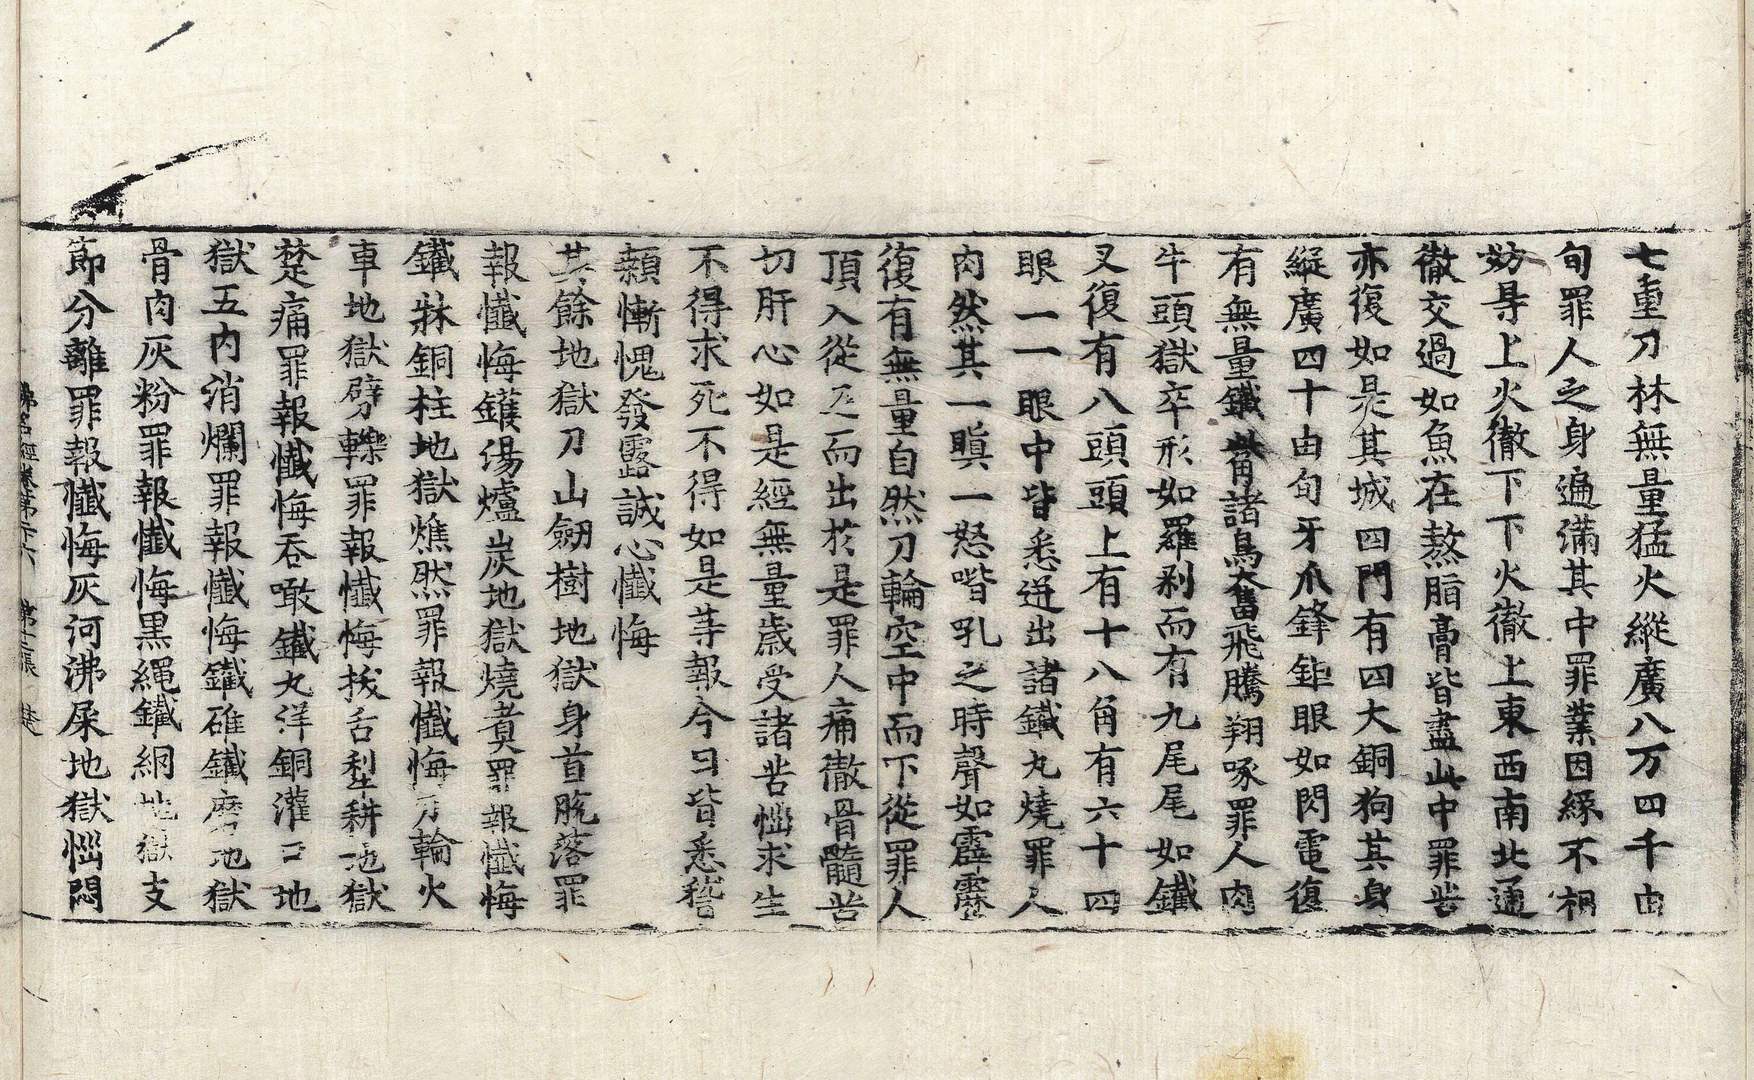 七重刀林無量猛火縱廣八万四千由
旬罪人之身遍滿其中罪業因緣不相
妨㝵上火徹下下火徹上東西南北通
徹交過如魚在熬脂膏皆盡此中罪苦
亦復如是其城四門有四大銅狗其身
縱廣四十由旬牙爪鋒鋩眼如閃電復
有無量鐵觜諸鳥奮飛騰翔啄罪人肉
牛頭獄卒形如羅剎而有九尾尾如鐵
叉復有八頭頭上有十八角有六十四
眼一一眼中皆悉迸出諸鐵丸燒罪人
肉然其一瞋一怒哮吼之時聲如霹靂
復有無量自然刀輪空中而下從罪人
頂入從足而出於是罪人痛徹骨髓苦
切肝心如是經無量歲受諸苦惱求生
不得求死不得如是等報今日皆悉稽
顙慚愧發露誠心懺悔
其餘地獄刀山劒樹地獄身首脫落罪
報懺悔鑊湯爐炭地獄燒煑罪報懺悔
鐵牀銅柱地獄燋然罪報懺悔刀輪火
車地獄劈轢罪報懺悔拔舌犁耕地獄
楚痛罪報懺悔吞噉鐵丸洋銅灌口地
獄五內消爛罪報懺悔鐵磓鐵磨地獄
骨肉灰粉罪報懺悔黑繩鐵網地獄支
節分離罪報懺悔灰河沸屎地獄惱悶
佛名經卷第十六 第十二張 楚